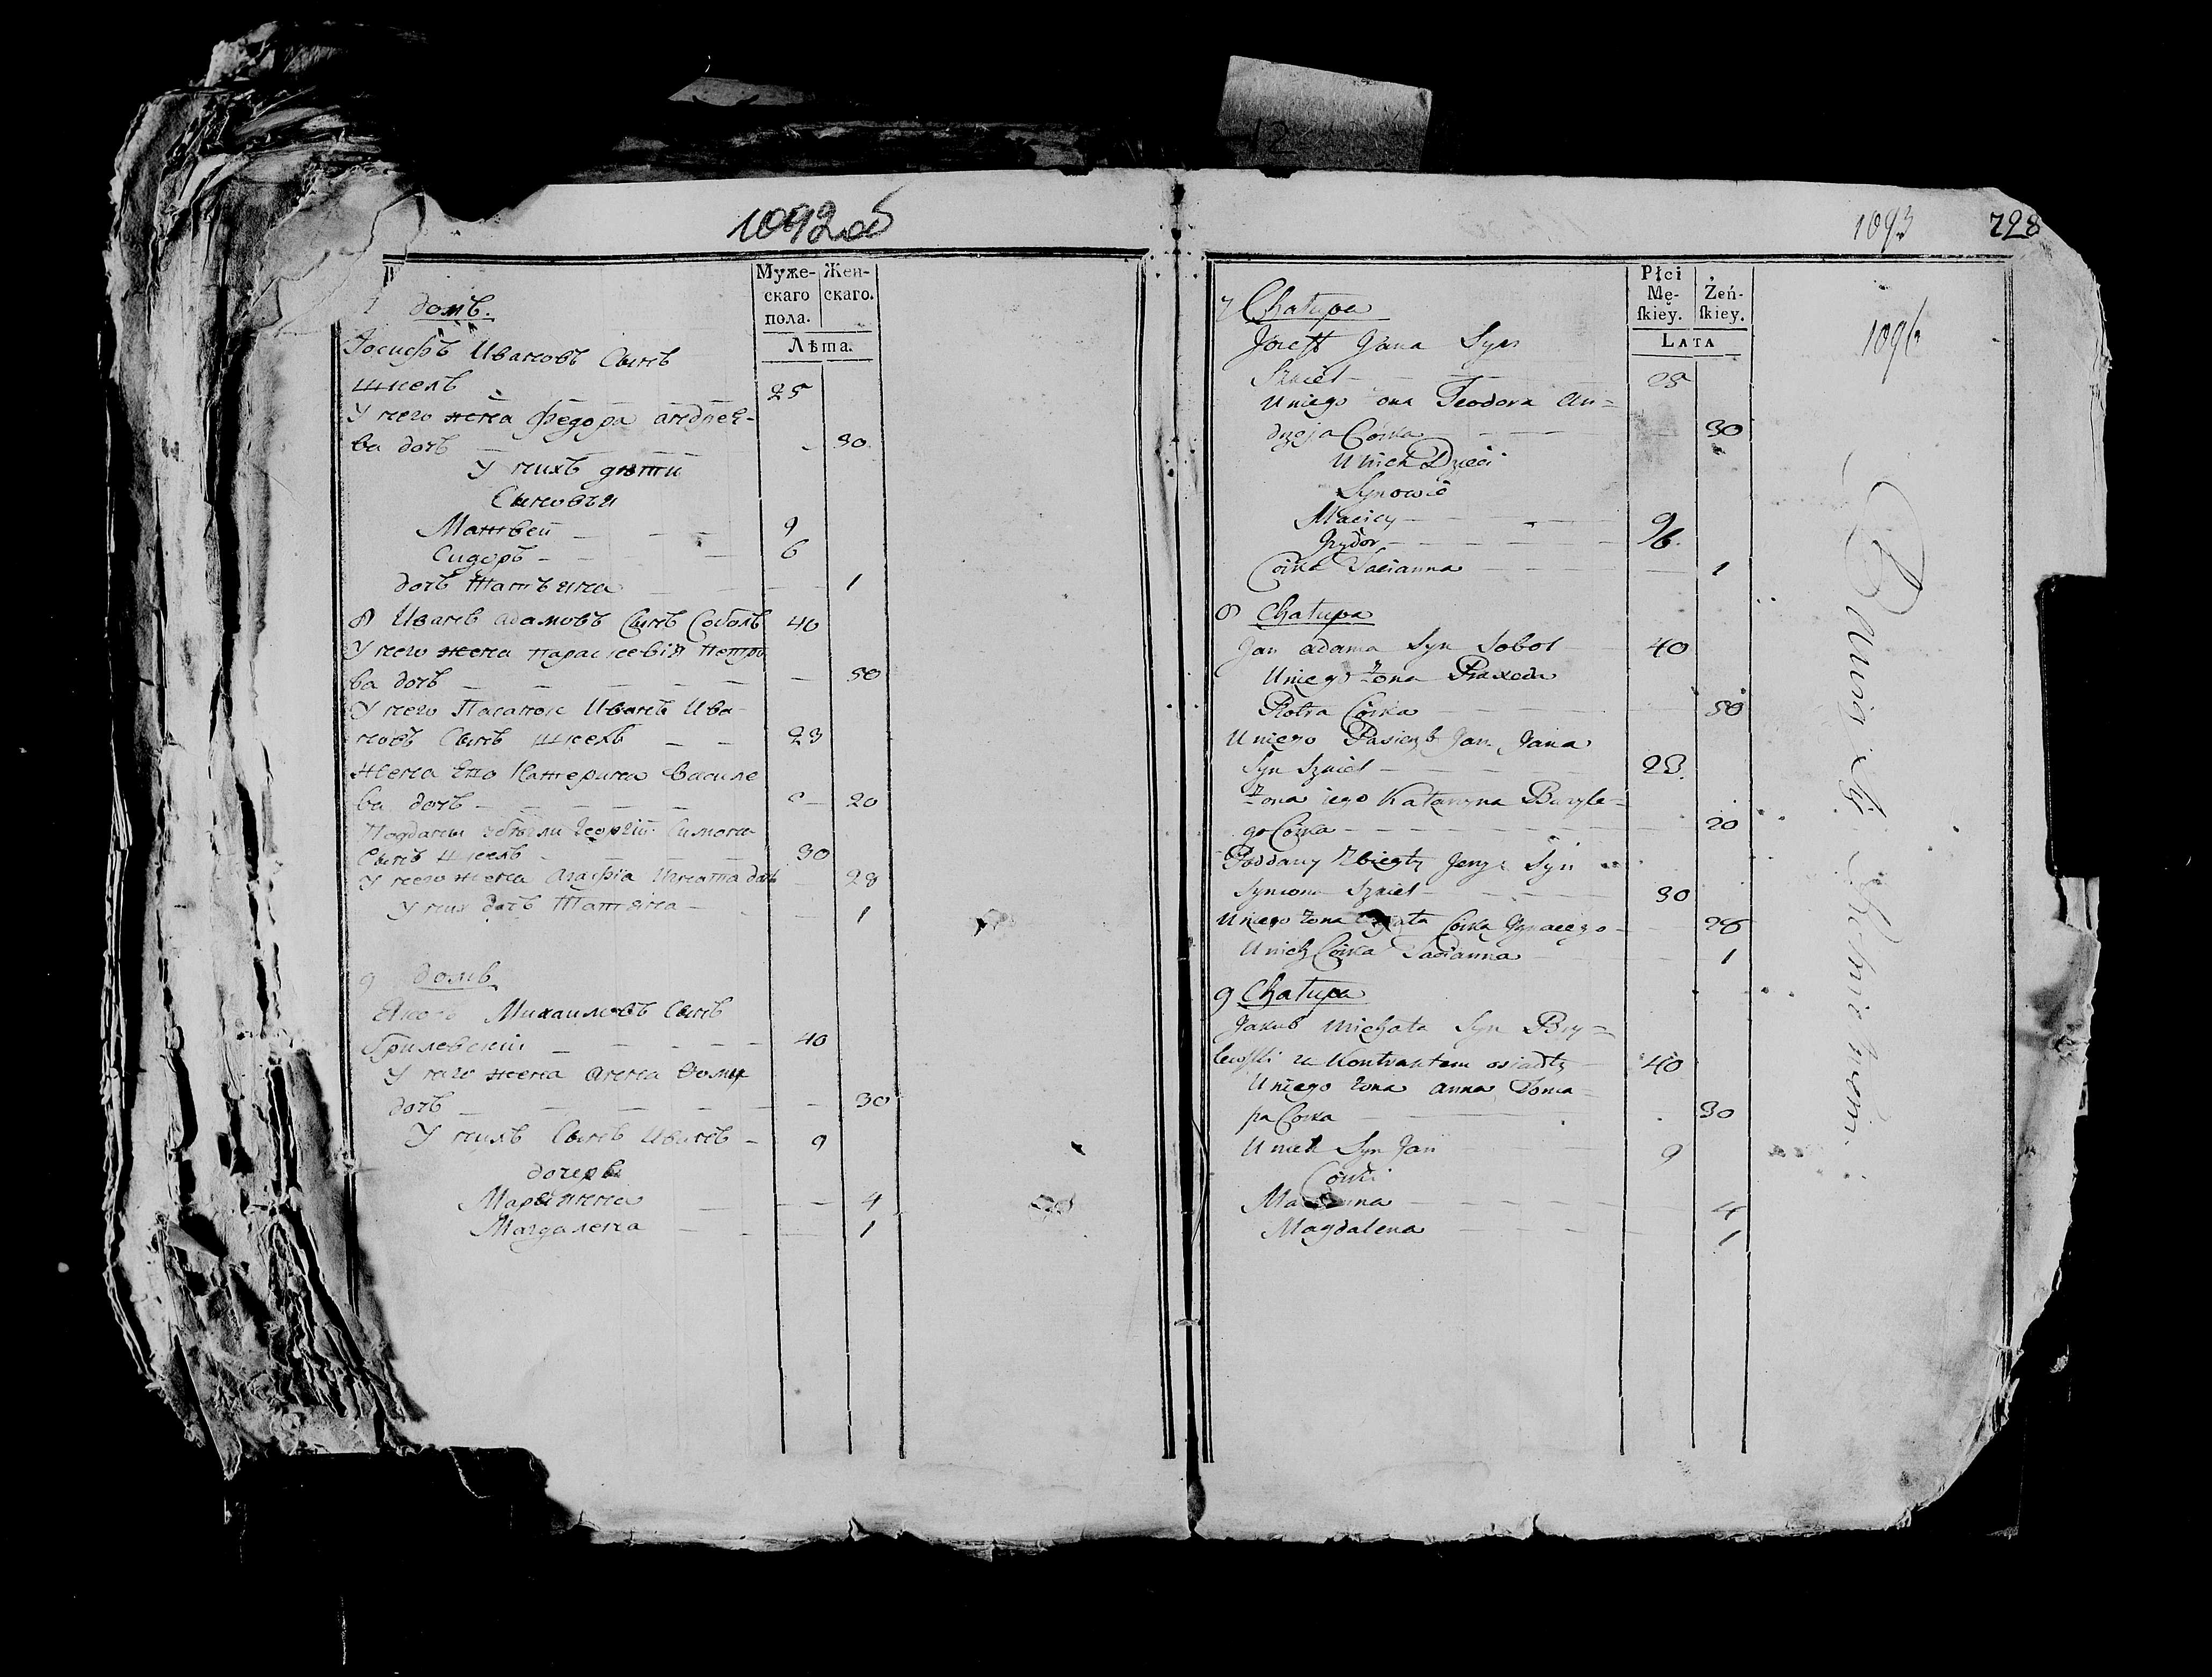 1092об
Муже- Жен-
скаго скаго.
пола.
Лѣта.
домъ.
Іосифъ Ивановъ Сынъ
Шкель 25
У него жена Федора андрее-
ва дочь 30
У нихъ дѣти
Сыновья
Матвей 9
Сидоръ 6
дочь Татьяна 1
8 Иванъ адамовъ Сынъ Соболь 40
У него жена параскевія петро
ва дочь 50
У него Пасанок Иванъ Ива
новъ Сынъ Шкель 23
жена Его Катерина василе
ва дочь 20
Георгій Симона
Сынъ Шкель 30
У него жена Агафія Игната дочь 28
У них дочь Татяна 1
9 домъ
Михаиловъ Сынъ
Брилевскій 40
У него жена анна Фомы
дочь 30
У нихъ Сынъ Иванъ 9
дочери
Марыянна 4
Магдалена 1
1093 728
1093
Płci
Mę- Żeń-
ſkiey. ſkiey.
LATA
7 Chałupa
Jozeff Jana Syn
Szkiel 25
Uniego ona Teodora An=
drzeja Córka 30
Unich Dzieci
Synowie
Maciey 9
6
Córka Tacianna 1
8 Chałupa
Jan adama Syn Sobol 40
Uniego żona Praxeda
Piotra Córka 50
Uniego Pasierzb Jan Jana
Syn Szkiel 23.
żona iego Katarzyna Bazyle=
go Córka 20
Poddany Zbiegły Jerzy Syn
Symona Szkiel 30
Uniego żona Agata Córka Ignacego 28
Unich Córka Tacianna 1
9 Chałupa
Jakub Michała Syn Bry=
lewſki za Kontraktem osiadły 40
Uniego żona anna Toma
Córka 30
Unich Syn Jan 9
Córki
Marianna 4
Magdalena 1